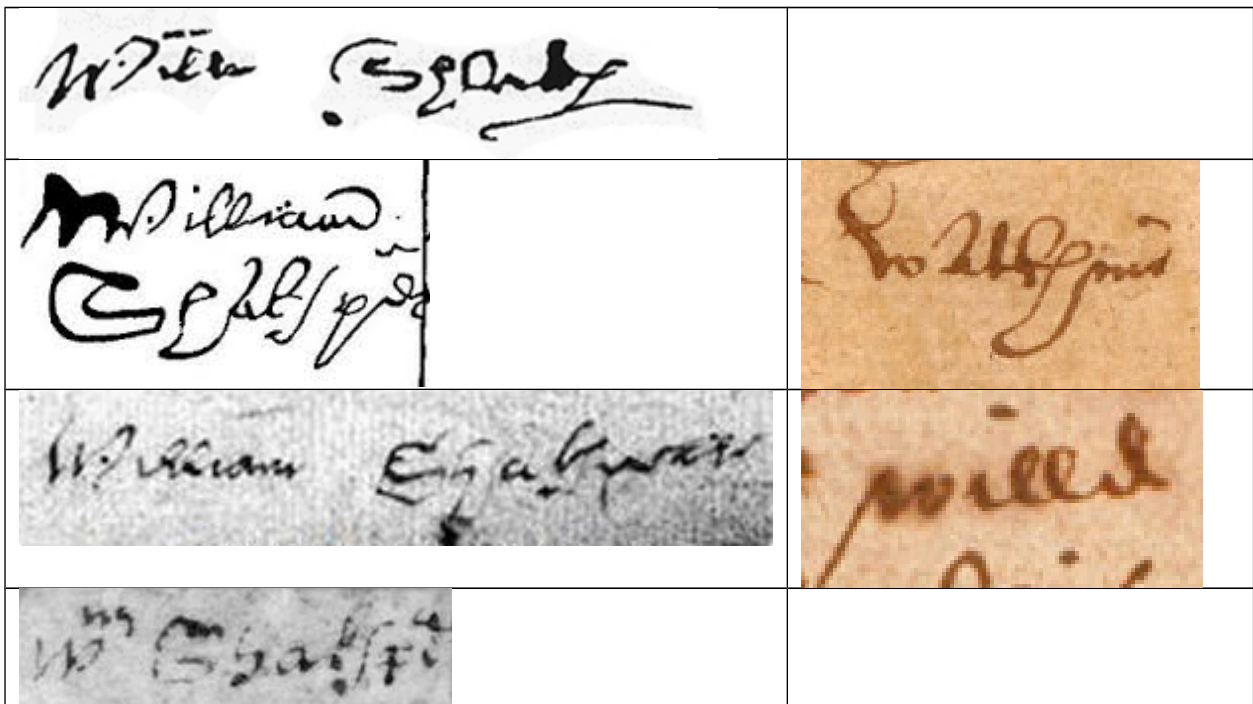 Willm Shakp
William
Shakspēr
William Shakspere
Wm Shakspē